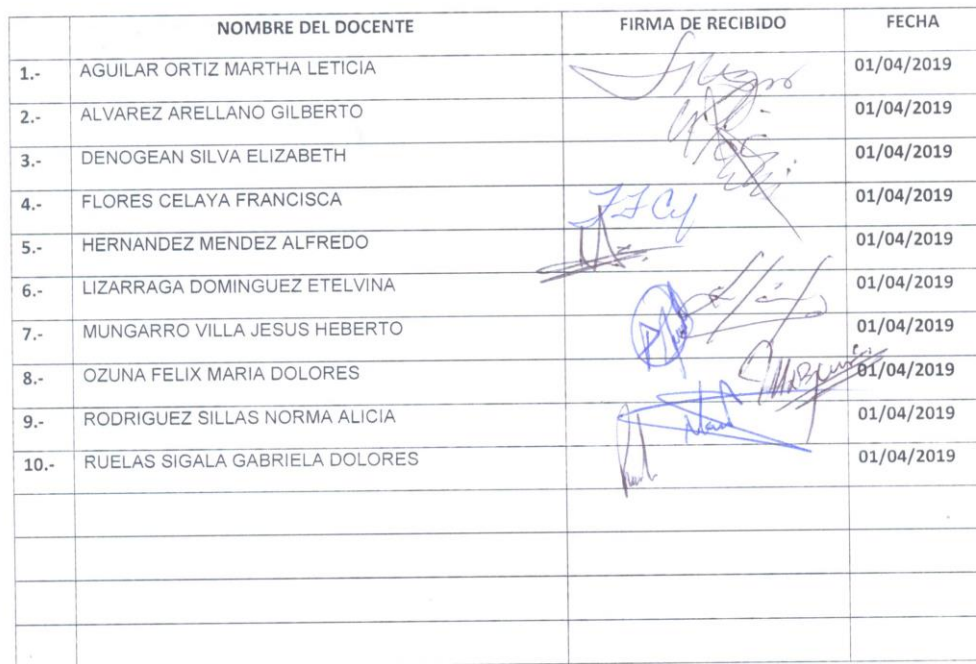 NOMBRE DEL DOCENTE FIRMA DE RECIBIDO FECHA
1.- AGUILAR ORTIZ MARTHA LETICIA 01/04/2019
2.- ALVAREZ ARELLANO GILBERTO 01/04/2019
3.- DENOGEAN SILVA ELIZABETH 01/04/2019
4.- FLORES CELAYA FRANCISCA 01/04/2019
5.- HERNANDEZ MENDEZ ALFREDO 01/04/2019
6.- LIZARRAGA DOMINGUEZ ETELVINA 01/04/2019
7.- MUNGARRO VILLA JESUS HEBERTO 01/04/2019
8.- OZUNA FELIX MARIA DOLORES 01/04/2019
9.- RODRIGUEZ SILLAS NORMA ALICIA 01/04/2019
10.- RUELAS SIGALA GABRIELA DOLORES 01/04/2019